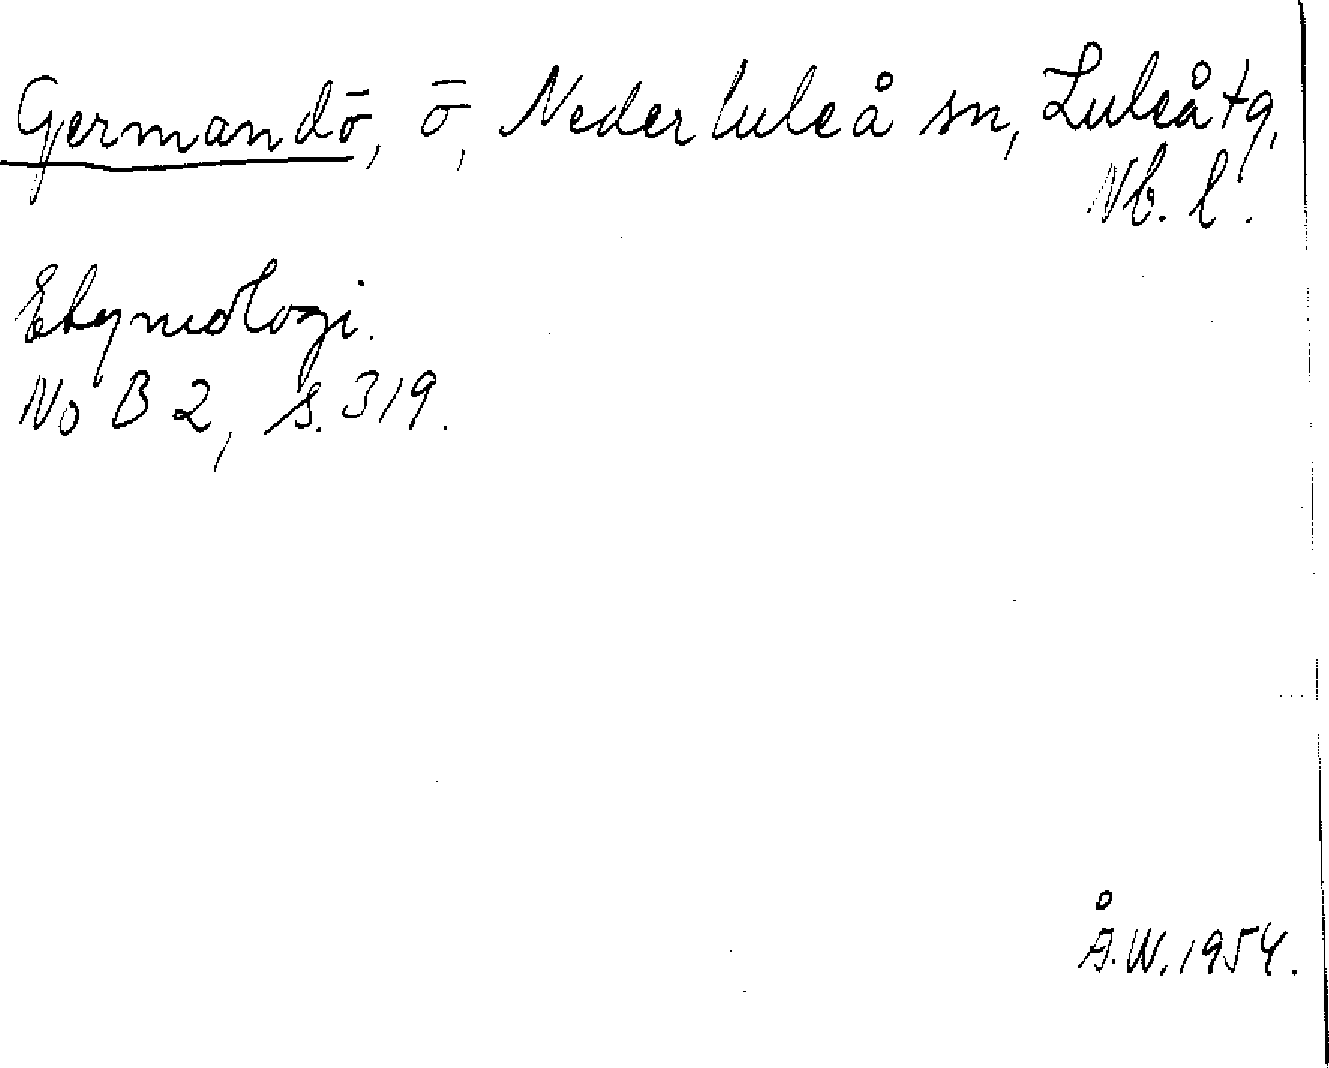 Germandö, ö, Nederluleå sn, Luleå tg,
Nb. l.
Etymologi.
NoB 2, s. 319.
Å.W. 1954.